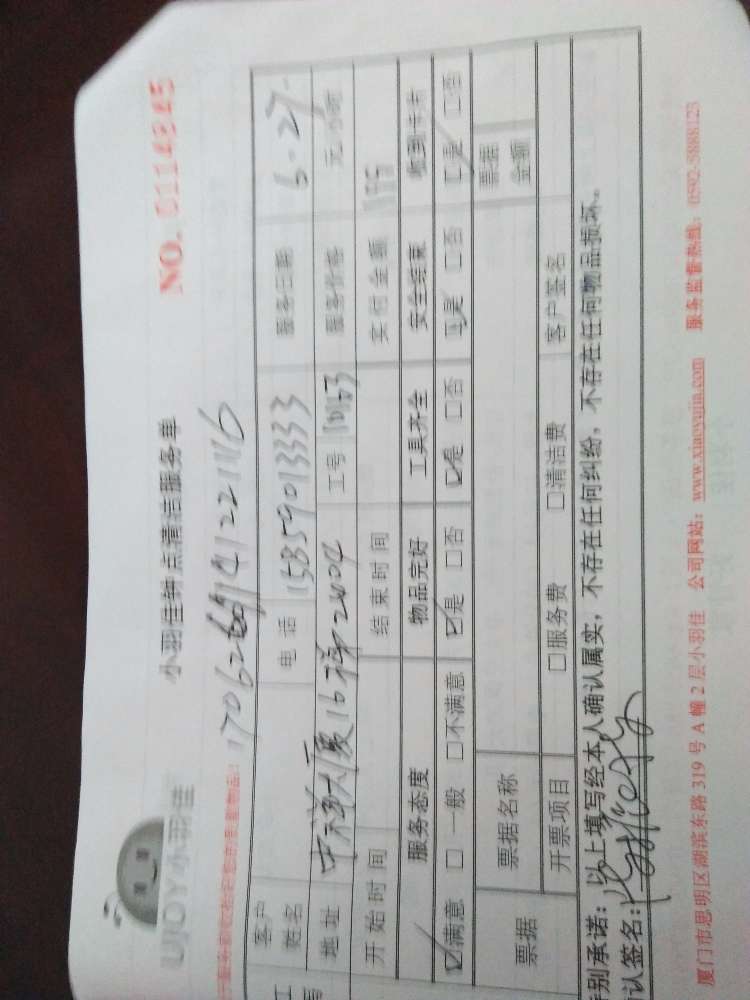 UJOY小羽佳
小羽佳钟点清洁服务单
NO. 0114945
客户姓名 电话 15859013333 服务日期 6.27
地址 中祥大厦16梯2404 工号 服务价格 元/小时
开始时间 结束时间 实付金额
服务态度 物品完好 工具齐全 安全结束 收到卡片
☑满意 □一般 □不满意 ☑是 □否 ☑是 □否 ☑是 □否 ☑是 □否
票据 票据名称 票据金额
开票项目 □服务费 □清洁费 客户签名
别承诺：以上填写经本人确认属实，不存在任何纠纷，不存在任何物品损坏。
认签名：
厦门市思明区湖滨东路 319 号 A 幢 2 层小羽佳 公司网站：www.xiaoyujia.com 服务监督热线：0592-5888123